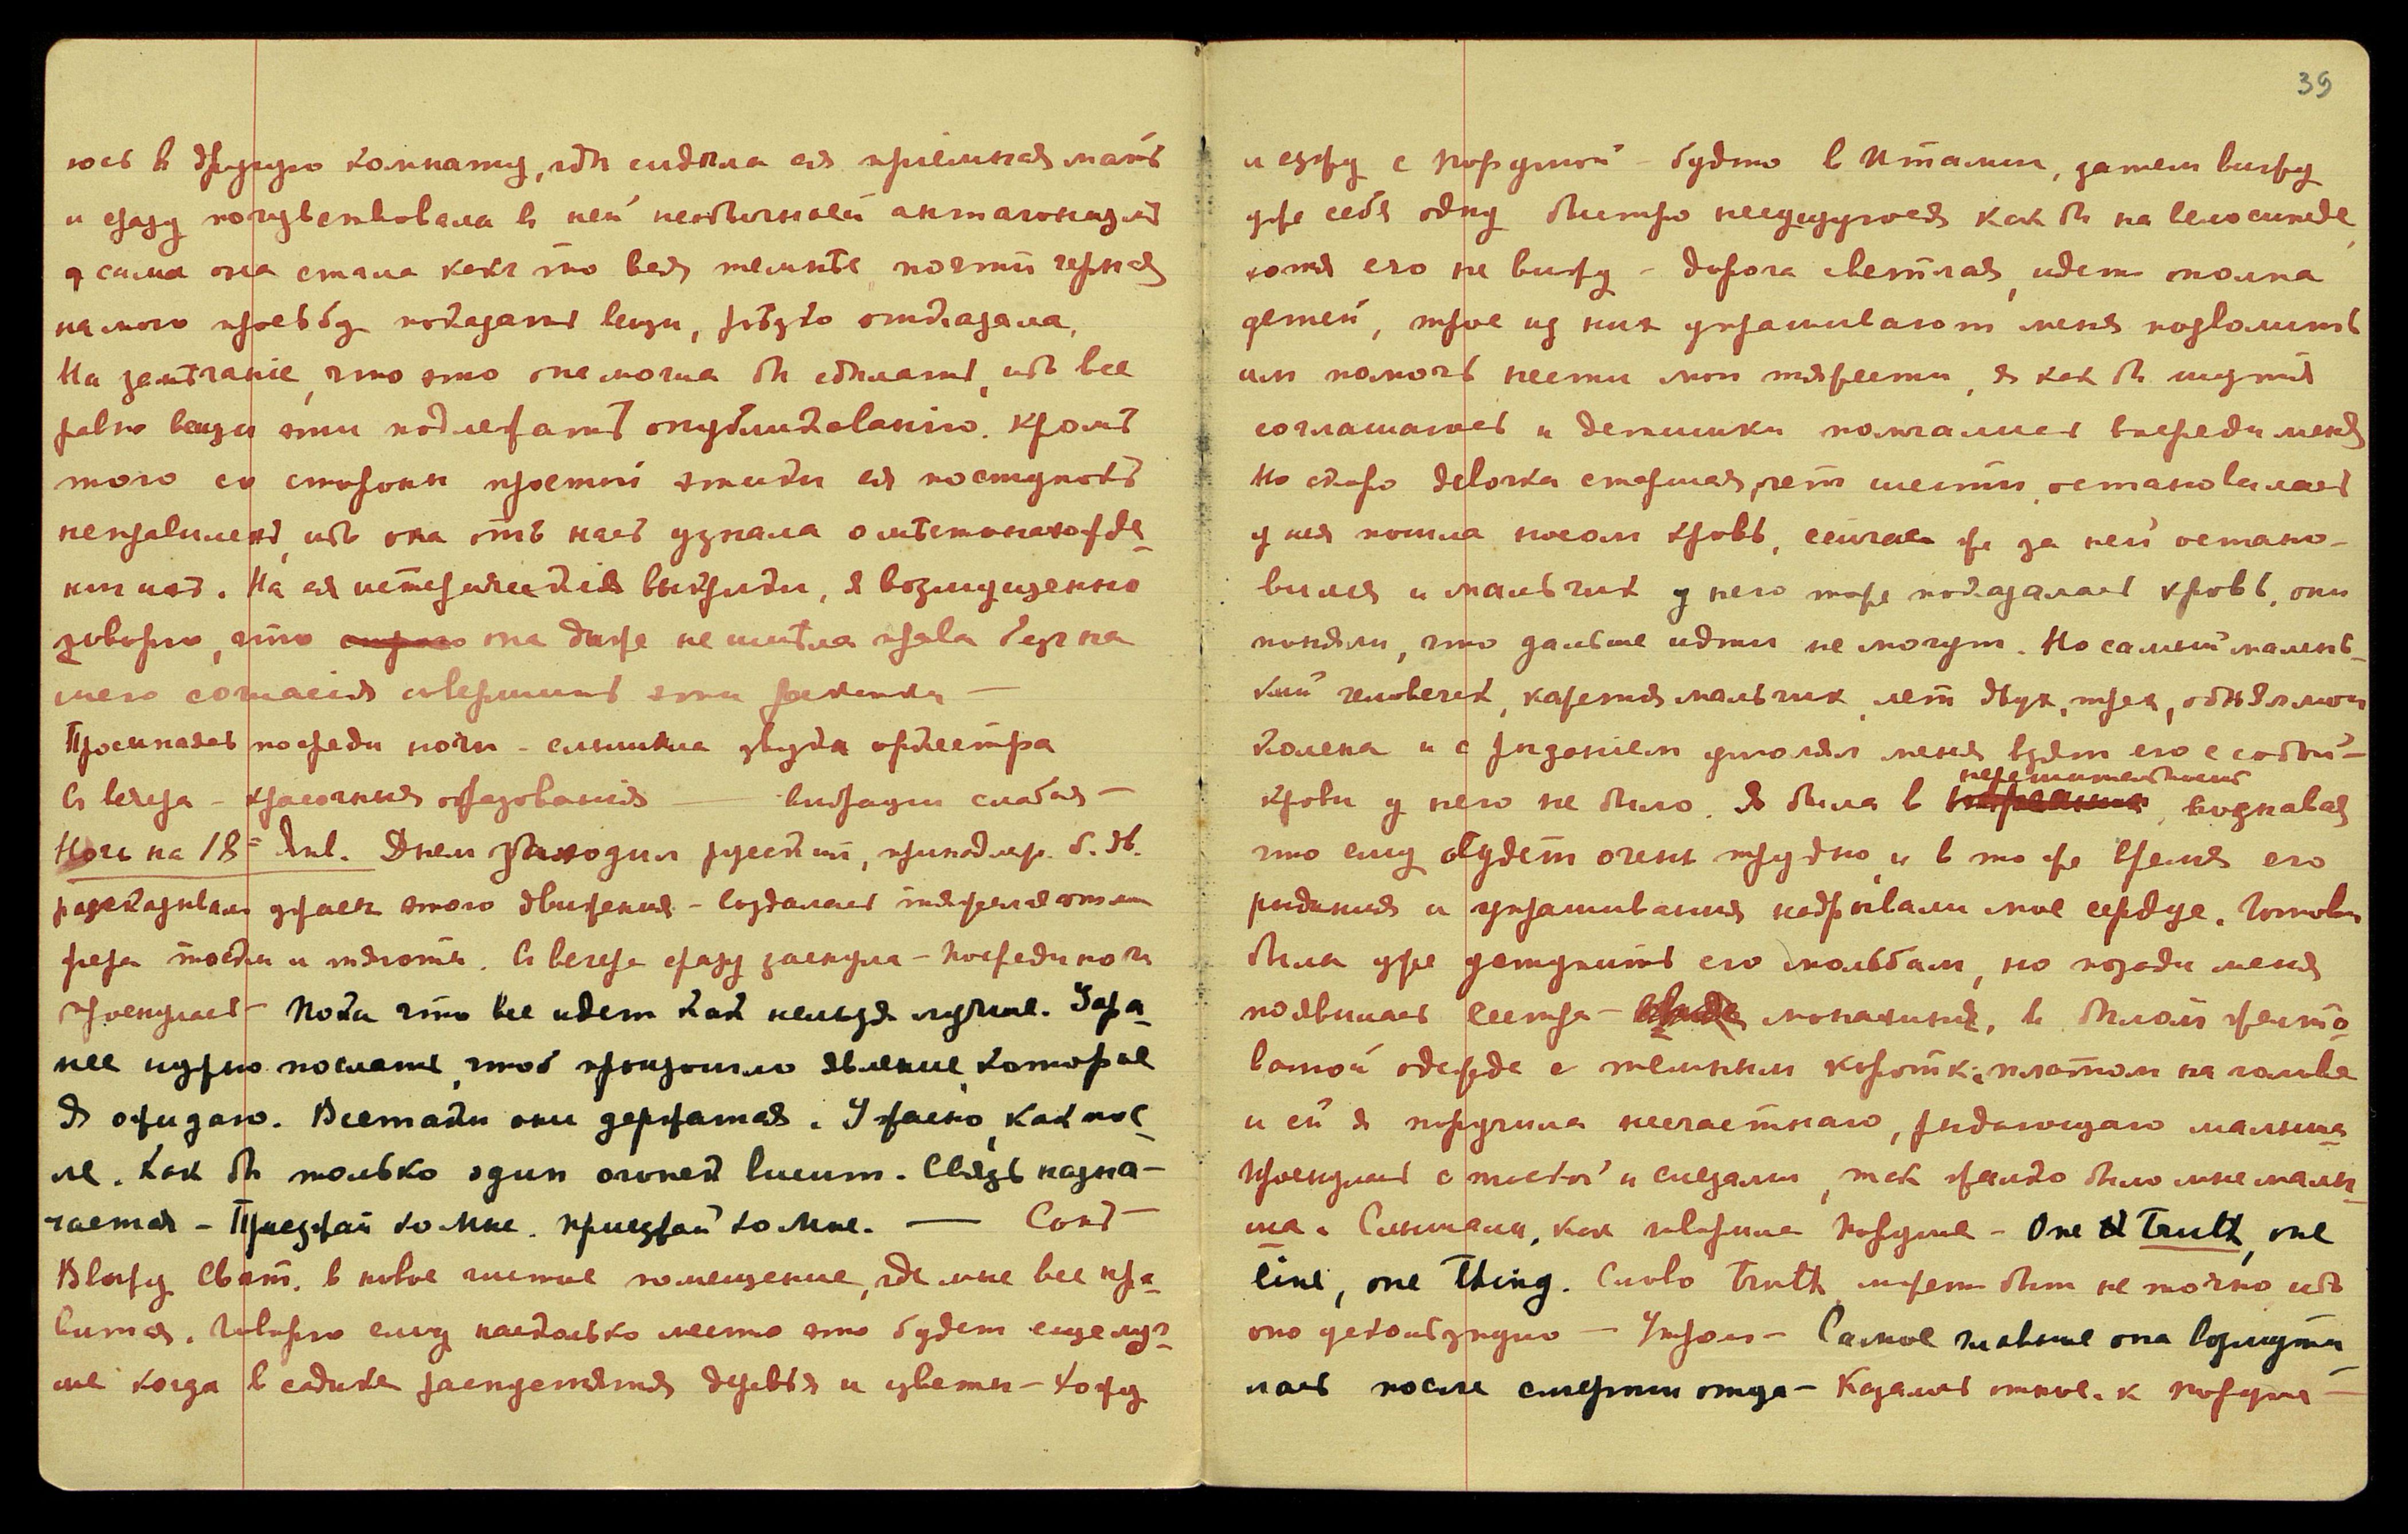 юсь в другую комнату, гдѣ сидѣла ея приемная мать
и сразу почувствовала в ней необычный антагонизмъ
и сама она стала какъ то вся темнѣе, почти черная
на мою просьбу показать вещи, рѣзко отказала.
На замѣчаніе, что это она могла бы сдѣлать, ибо все
равно вещи эти подлежатъ опубликованію. Кромѣ
того со стороны простой этики ея поступокъ
неправиленъ, ибо она отъ насъ узнала о мѣстонахожде-
нии их. На ея истерическія выкрики, я возмущенно
говорю, что она даже не имѣла права без на
шего согласія совершить эти
Просыпаясь посреди ночи – слышала звуки оркестра
С вечера – красочныя образования — вибрации слабыя –
Ночь на 18 Янв. Днем заходил русский, принадлеж. б. дв.
рассказывал ужасы этого движения – создалась тяжелая атмос
фера тоски и тяготы. С вечера сразу заснула – Посреди ночи
проснулась – Пока что все идет как нельзя лучше. Зара-
нее нужно послать, чтоб произошло явление, которое
Я ожидаю. Всетаки они держатся. Ужасно, как пос-
ле. Как бы только один огонек висит. Связь назна-
чается – Приезжай ко Мне. приезжай ко Мне. — Сонъ –
Ввожу Свят. в новое чистое помещение, где мне все нра-
вится. Говорю ему насколько место это будет еще луч-
ше когда в садике распустятся деревья и цветы – Хожу
39
и езжу с Порумой – будто в Италии, затем вижу
уже себя одну быстро несущуюся как бы на велосипеде,
хотя его не вижу – дорога светлая, идет толпа
детей, трое из них упрашивают меня позволить
им помочь нести мои тяжести, я как бы шутя
соглашаюсь и детишки помчались впереди меня
Но скоро девочка старшая, лет шести, остановилась
у нея пошла носом кровь, сейчас же за ней остано-
вился и мальчик у него тоже показалась кровь, они
поняли, что дальше идти не могут. Но самый малень-
кий человечек, кажется мальчик, лет двух, трех, обнял мои
колена и с рыданием умолял меня взять его с собой –
крови у него не было. Я была в нерешительности, сознавая
что ему будет очень трудно, и в то же время его
рыдания и упрашивания надрывали мое сердце. Готова
была уже уступить его мольбам, но позади меня
появилась сестра – монахиня, в белой желто-
ватой одежде с темным коротк. платком на голове
и ей я поручила несчастнаго, рыдающаго малыша
Проснулась с тоской и слезами, так жалко было мне малы-
ша. Слышала, как говорила Порума – One Truth, one
line, one thing. Слово Truth может быть не точно ибо
оно ускользнуло — Утром – Самое главное она возмути
лась после смерти отца – Казалось относ. к Поруме –